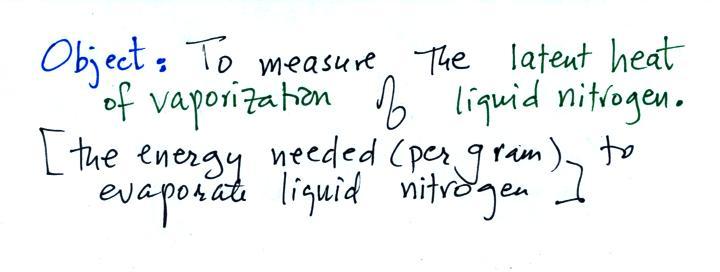 Object: To measure The latent heat
of vaporization of liquid nitrogen.
[the energy needed (per gram), to
evaporate liquid nitrogen]